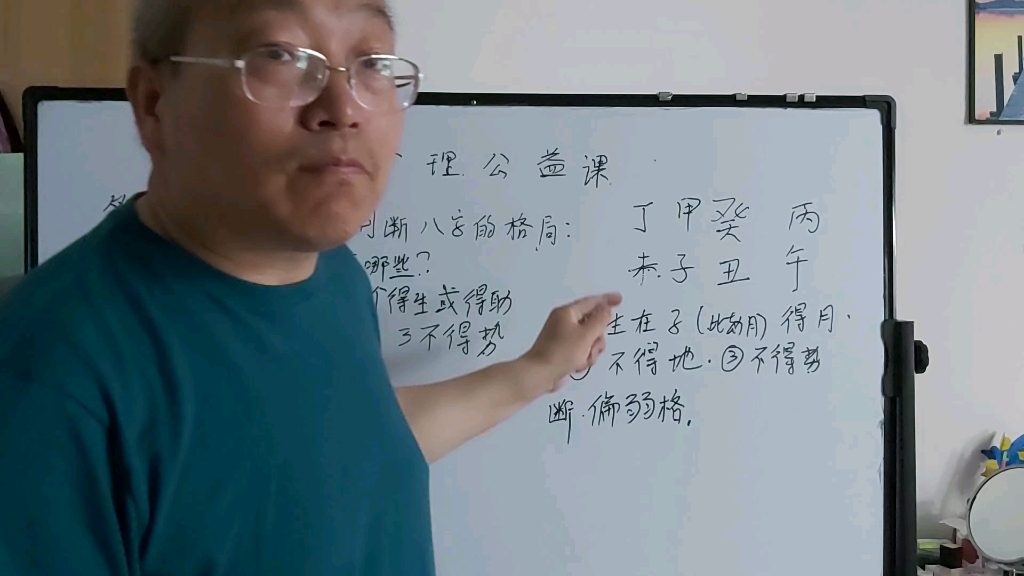 理公益课
判断八字的格局:
哪些?
个得生或得助
3不得势
丁甲癸 丙
未.子 丑 午
生在子(比劫月)得月.
不得地.③不得势
断.偏弱格.